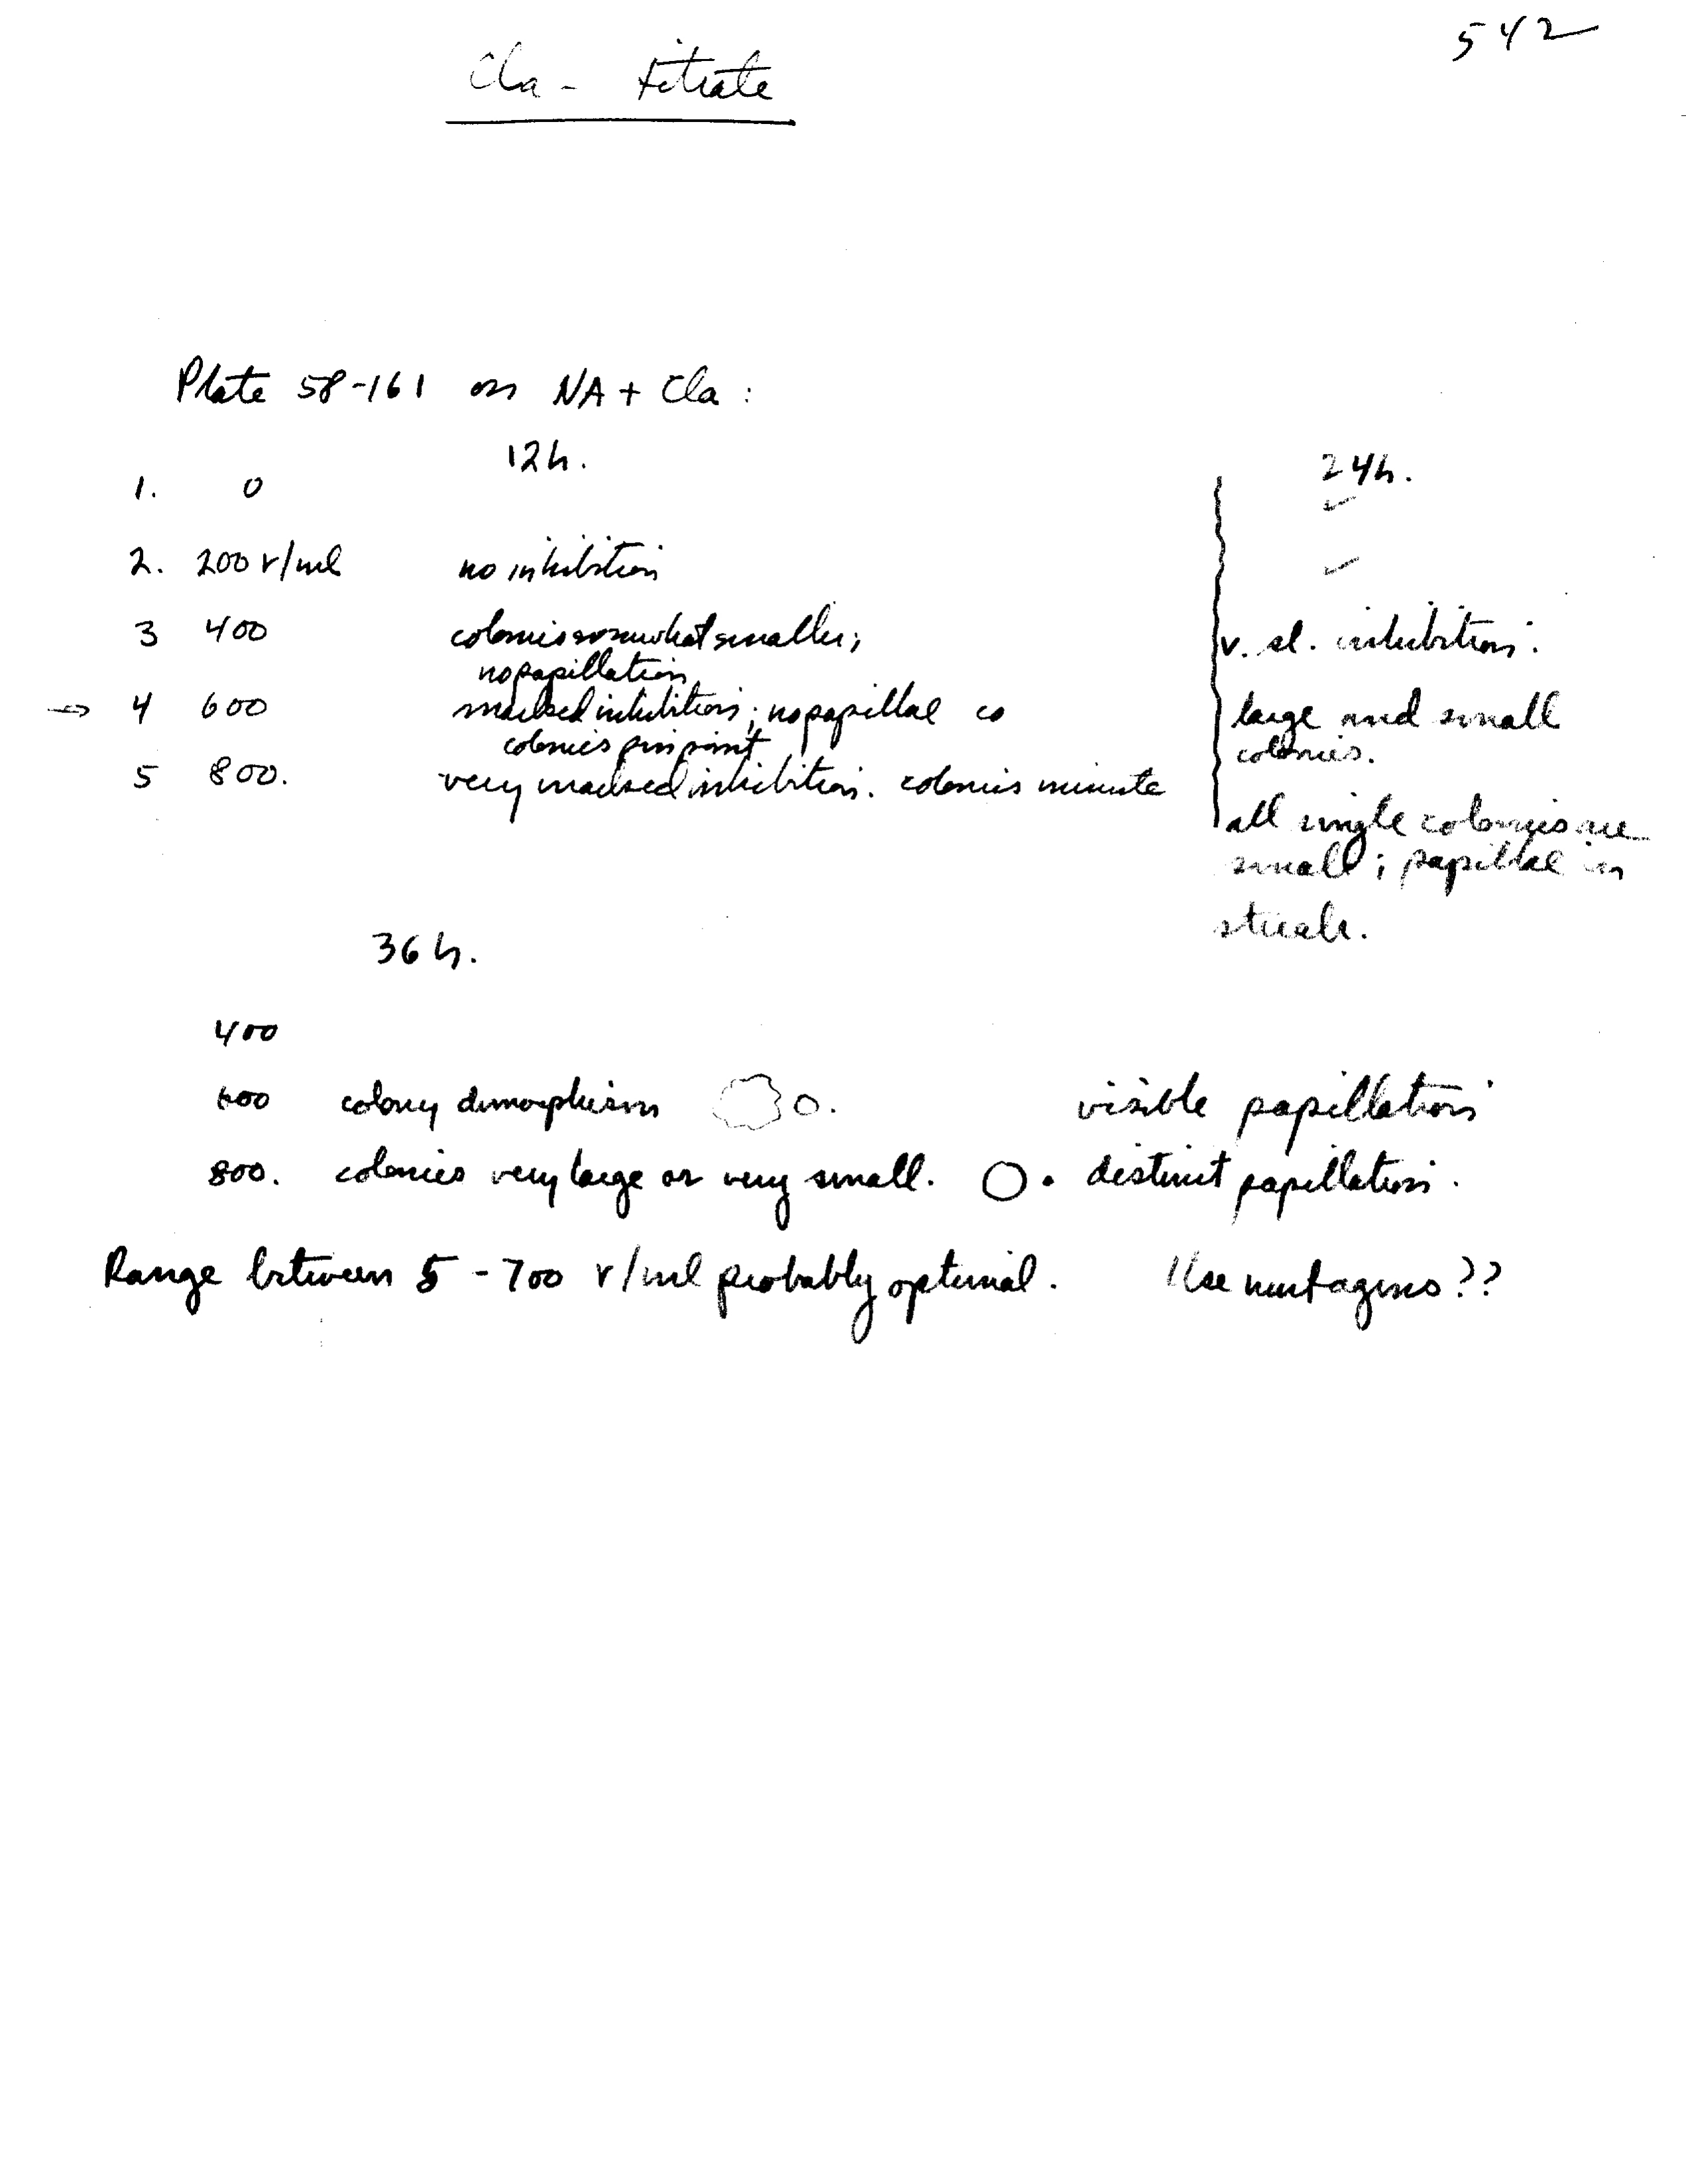 542
Cla - titrate
Plate 58-161 on NA + Cla :
12h. 24h.
1. 0 ✓
2. 200 γ/ml no inhibition ✓
3 400 colonies somewhat smaller; v. sl. inhibition.
no papillation
→ 4 600 marked inhibition; no papillae co large and small
colonies pinpoint colonies.
5 800. very marked inhibition. colonies minute
all single colonies are
small; papillae in
streak.
36 h.
400
600 colony dimorphism visible papillation
800. colonies very large or very small. distinct papillation.
Range between 5 - 700 γ/ml probably optimal. Use mutagens??